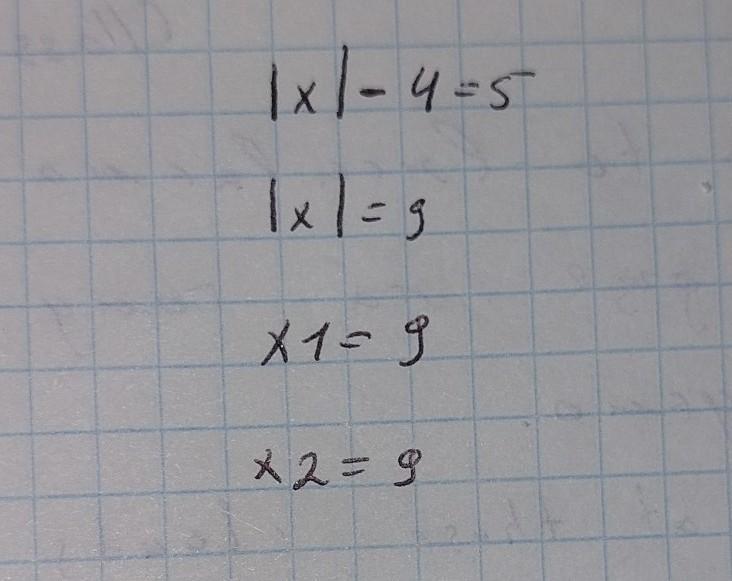 |x| - 4 = 5
|x| = 9
x1 = 9
x2 = 9